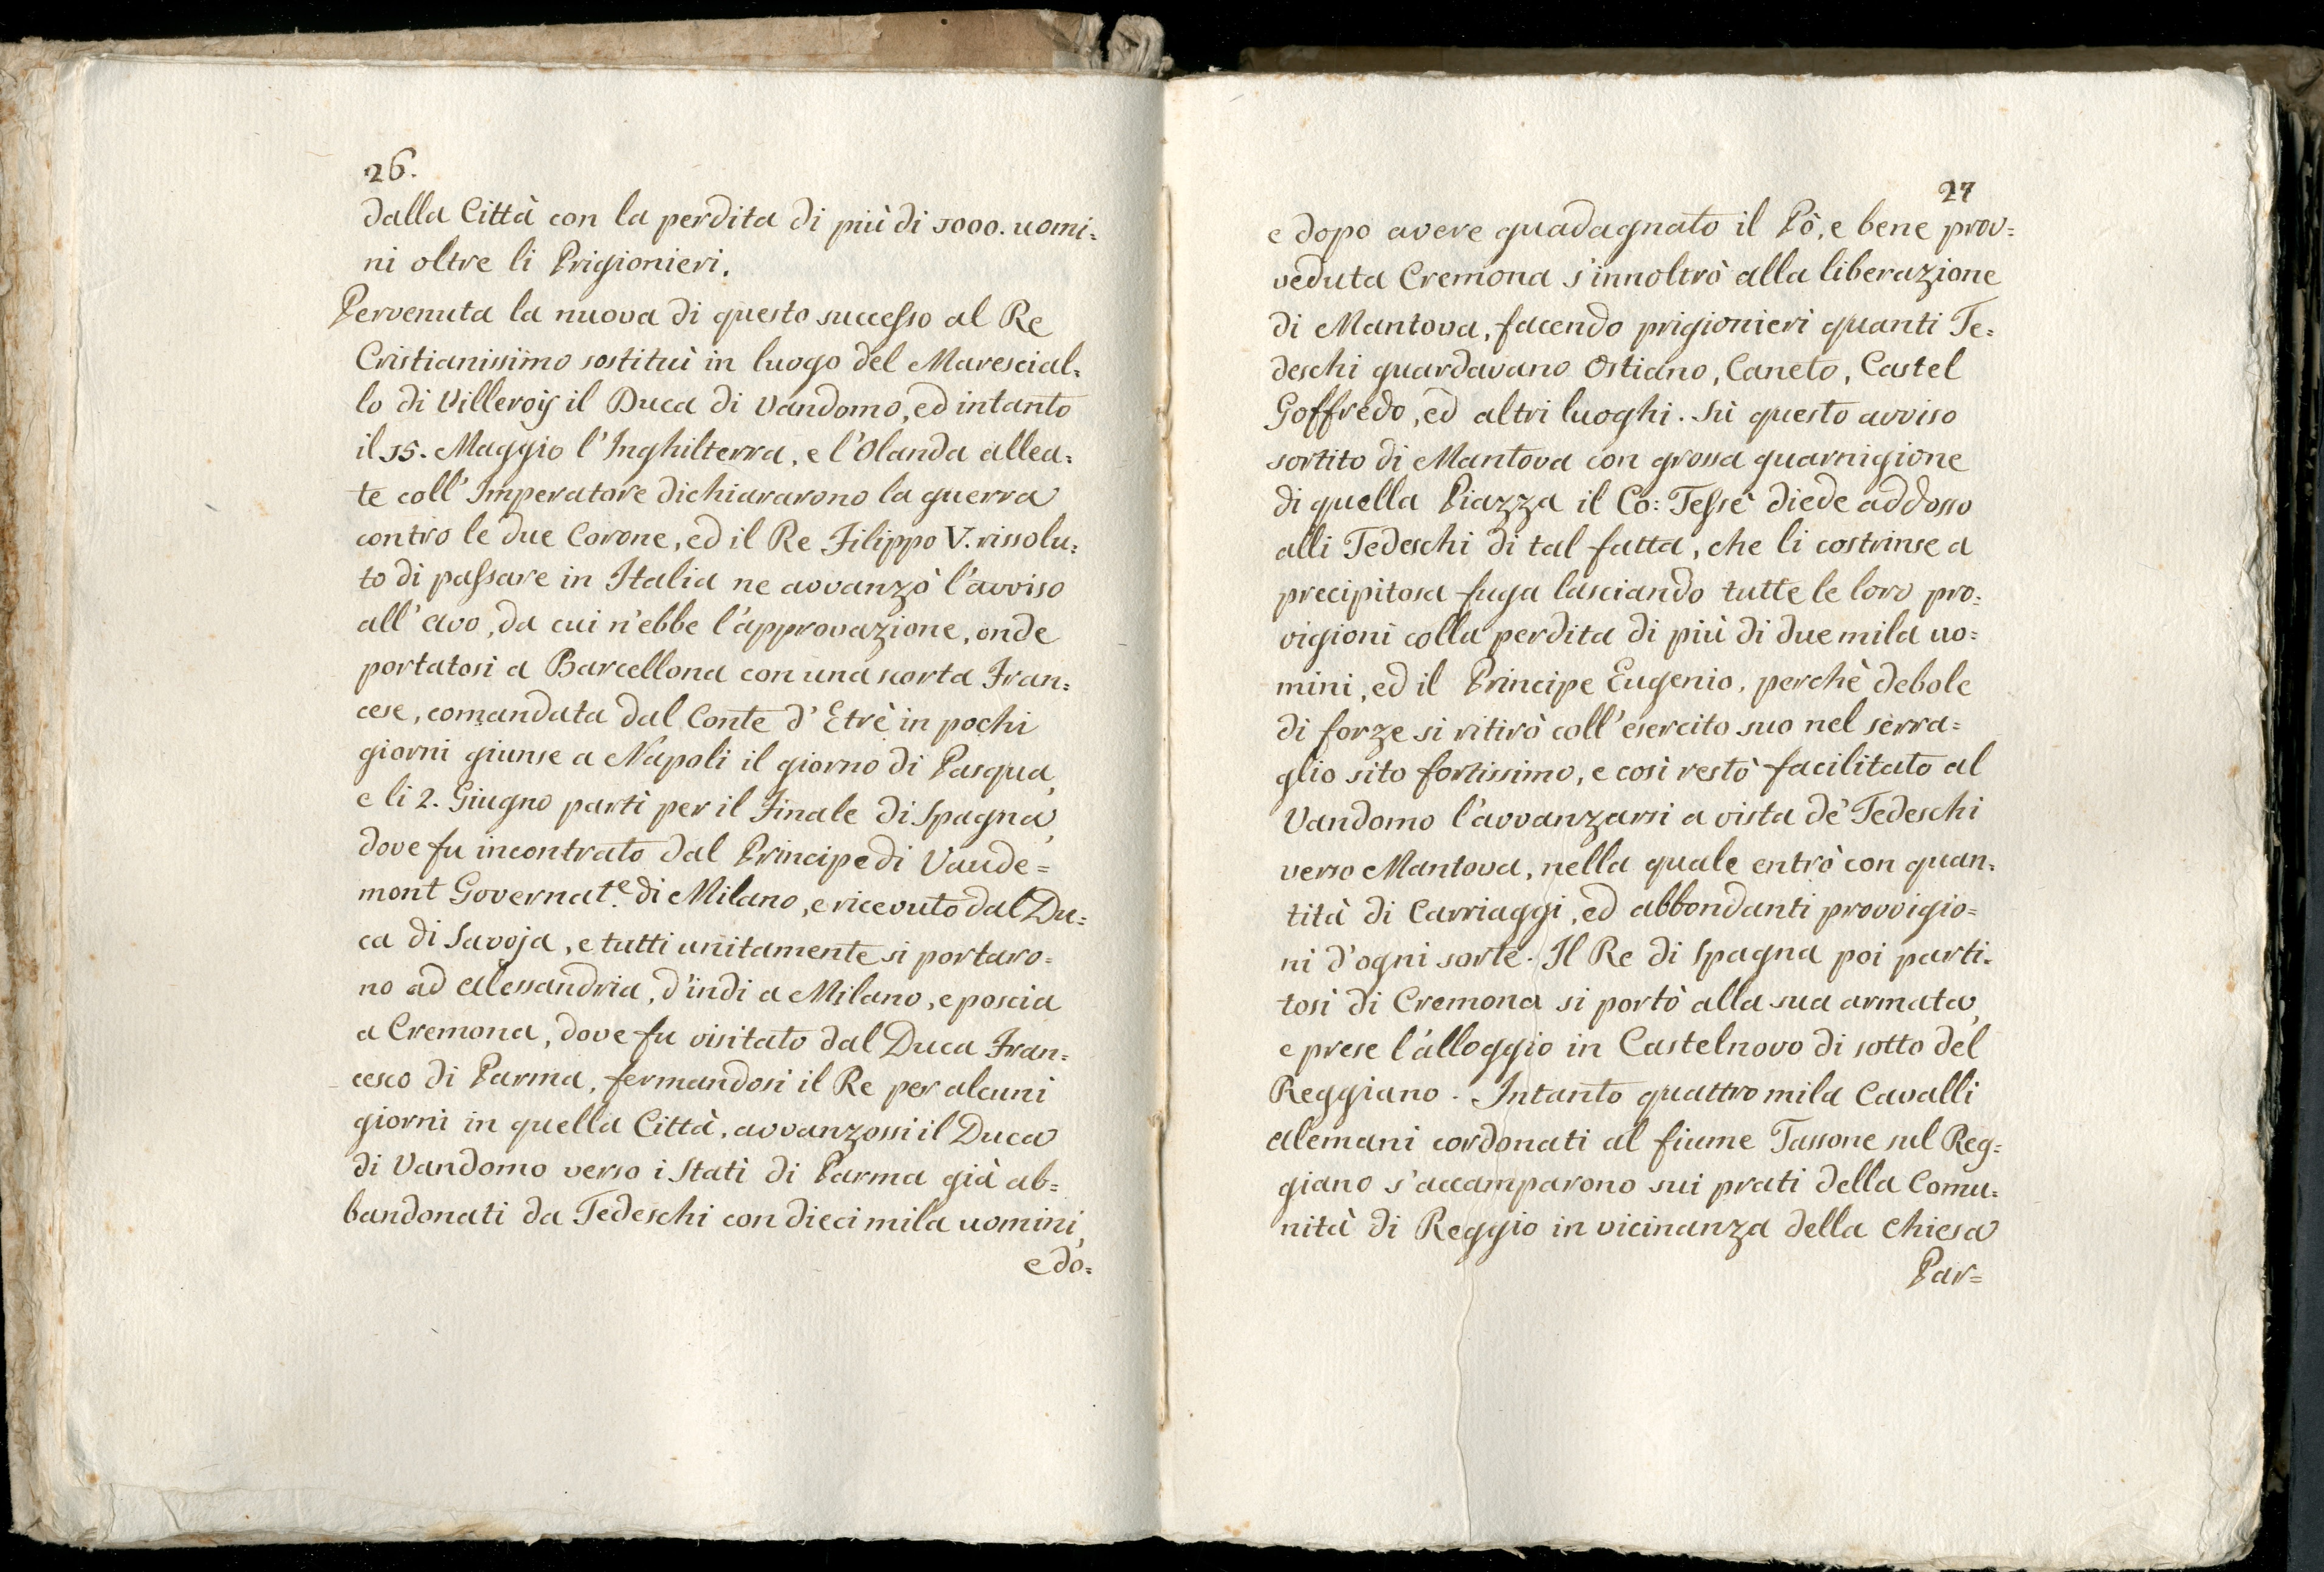 26.
dalla Città con la perdita di più di 1000. uomi=
ni oltre li Prigionieri.
Pervenuta la nuova di questo successo al Re
Cristianissimo sostituì in luogo del Marescial=
lo di Villeroij il Duca di Vandomo, ed intanto
il 15. Maggio l'Inghilterra, e l'Olanda allea=
te coll' Imperatore dichiararono la guerra
contro le due Corone, ed il Re Filippo V. rissolu=
to di passare in Italia ne avvanzò l'avviso
all' Avo, da cui n'ebbe l'approvazione, onde
portatosi a Barcellona con una scorta Fran=
cese, comandata dal Conte d' Etrè in pochi
giorni giunse a Napoli il giorno di Pasqua,
e li 2. Giugno partì per il Finale di Spagna,
dove fu incontrato dal Principe di Vaude=
mont Governat.e di Milano, e ricevuto dal Du=
ca di Savoja, e tutti unitamente si portaro=
no ad Alessandria, d'indi a Milano, e poscia
a Cremona, dove fu visitato dal Duca Fran=
cesco di Parma, fermandosi il Re per alcuni
giorni in quella Città, avvanzossi il Duca
di Vandomo verso i Stati di Parma già ab=
bandonati da Tedeschi con dieci mila uomini,
e do=
27
e dopo avere guadagnato il Pò, e bene prov=
veduta Cremona s'innoltrò alla liberazione
di Mantova, facendo prigionieri quanti Te=
deschi guardavano Ostiano, Caneto, Castel
Goffredo, ed altri luoghi. Sù questo avviso
sortito di Mantova con grossa guarnigione
di quella Piazza il Co: Tessè diede addosso
alli Tedeschi di tal fatta, che li costrinse a
precipitosa fuga lasciando tutte le loro pro=
vigioni colla perdita di più di due mila uo=
mini, ed il Principe Eugenio, perchè debole
di forze si ritirò coll' esercito suo nel serra=
glio sito fortissimo, e così restò facilitato al
Vandomo l'avvanzarsi a vista de' Tedeschi
verso Mantova, nella quale entrò con quan=
tità di Carriaggi, ed abbondanti provvigio=
ni d'ogni sorte. Il Re di Spagna poi parti=
tosi di Cremona si portò alla sua armata,
e prese l'alloggio in Castelnovo di sotto del
Reggiano. Intanto quattro mila Cavalli
Alemani cordonati al fiume Tassone sul Reg=
giano s'accamparono sui prati della Comu=
nità di Reggio in vicinanza della Chiesa
Par=